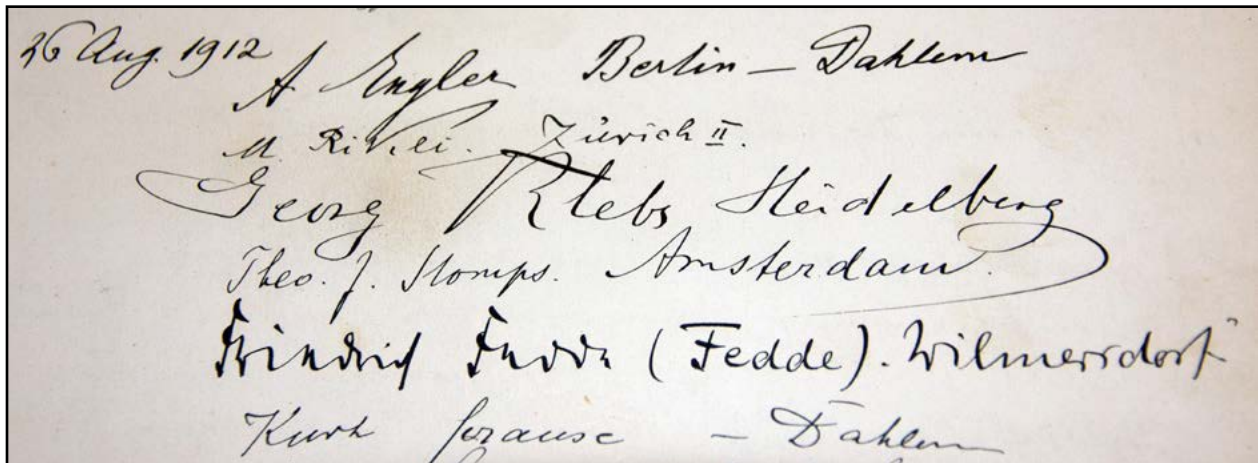 26 Aug. 1912
A Engler Berlin – Dahlem
M. Rikli. Zürich II.
Georg Klebs Heidelberg
Theo. J. Stomps. Amsterdam.
Friedrich Fedde (Fedde). Wilmersdorf
Kurt Krause – Dahlem